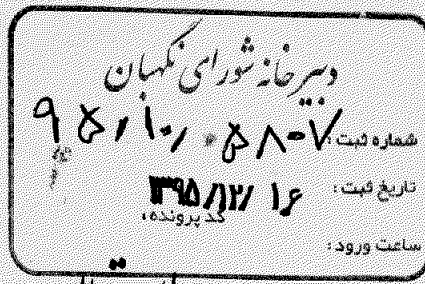 دبیرخانه شورای نگهبان
شماره ثبت: ۹۵/۱۰/۵۸۰۷
تاریخ ثبت: ۱۳۹۵/۱۲/۱۶
کد پرونده:
ساعت ورود: